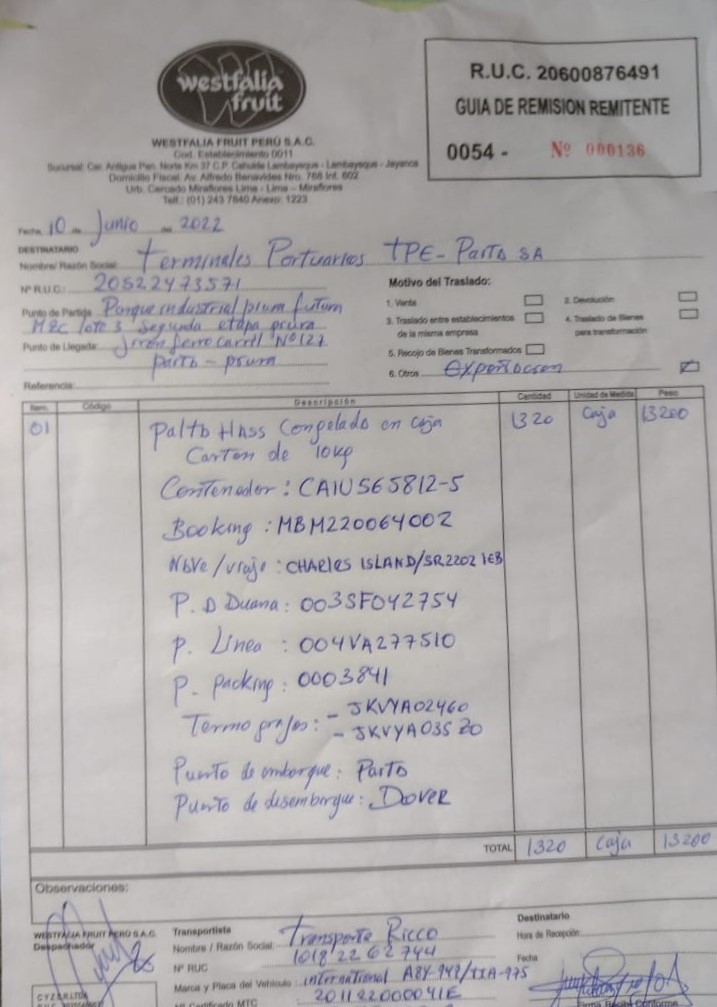 westfalia
fruit
WESTFALIA FRUIT PERÚ S.A.C.
Cod. Establecimiento 0011
Sucursal: Car. Antigua Pan. Norte Km 37 C.P. Cahuide Lambayeque - Lambayeque - Jayanca
Domicilio Fiscal: Av. Alfredo Benavides Nro. 768 Int. 602
Urb. Cercado Miraflores Lima - Lima - Miraflores
Telf.: (01) 243 7840 Anexo: 1223
R.U.C. 20600876491
GUIA DE REMISION REMITENTE
0054 - Nº 000136
Fecha, 10 de Junio de 2022
DESTINATARIO
Nombre/ Razón Social: Terminales Portuarios TPE - Paita SA
Nº R.U.C.: 20522473571
Punto de Partida: Parque industrial piura futura
Mzc lote 3 segunda etapa piura
Punto de Llegada: Jiron ferrocarril Nº 127
paita - piura
Referencia:
Motivo del Traslado:
1. Venta
2. Devolución
3. Traslado entre establecimientos
de la misma empresa
4. Traslado de Bienes
para transformación
5. Recojo de Bienes Transformados
6. Otros
Item. Código Descripción Cantidad Unidad de Medida Peso
01 Palta Hass Congelado en caja 1320 Caja 13200
Carton de 10kg
Contenedor : CAIU565812-5
Booking : MBM220064002
Nave / viaje : CHARLES ISLAND/SR22021EB
P. D Duana : 003SF042754
P. Linea : 004VA277510
P. packing : 0003841
Termo grafos : - JKVYA02460
- JKVYA03520
Punto de embarque : Paita
Punto de desembarque : DOVER
TOTAL 1320 Caja 13200
Observaciones:
WESTFALIA FRUIT PERÚ S.A.C.
Despachador
Transportista
Nombre / Razón Social: Transporte Ricco
Nº RUC
Marca y Placa del Vehículo : international
Nº Certificado MTC
Destinatario
Hora de Recepción:
Fecha
Firma Recibí Conforme